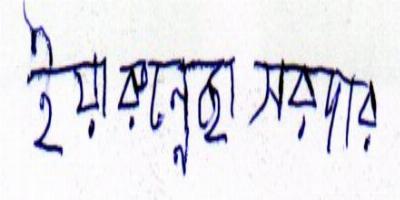 ইয়ারুন্নেছা সরদার